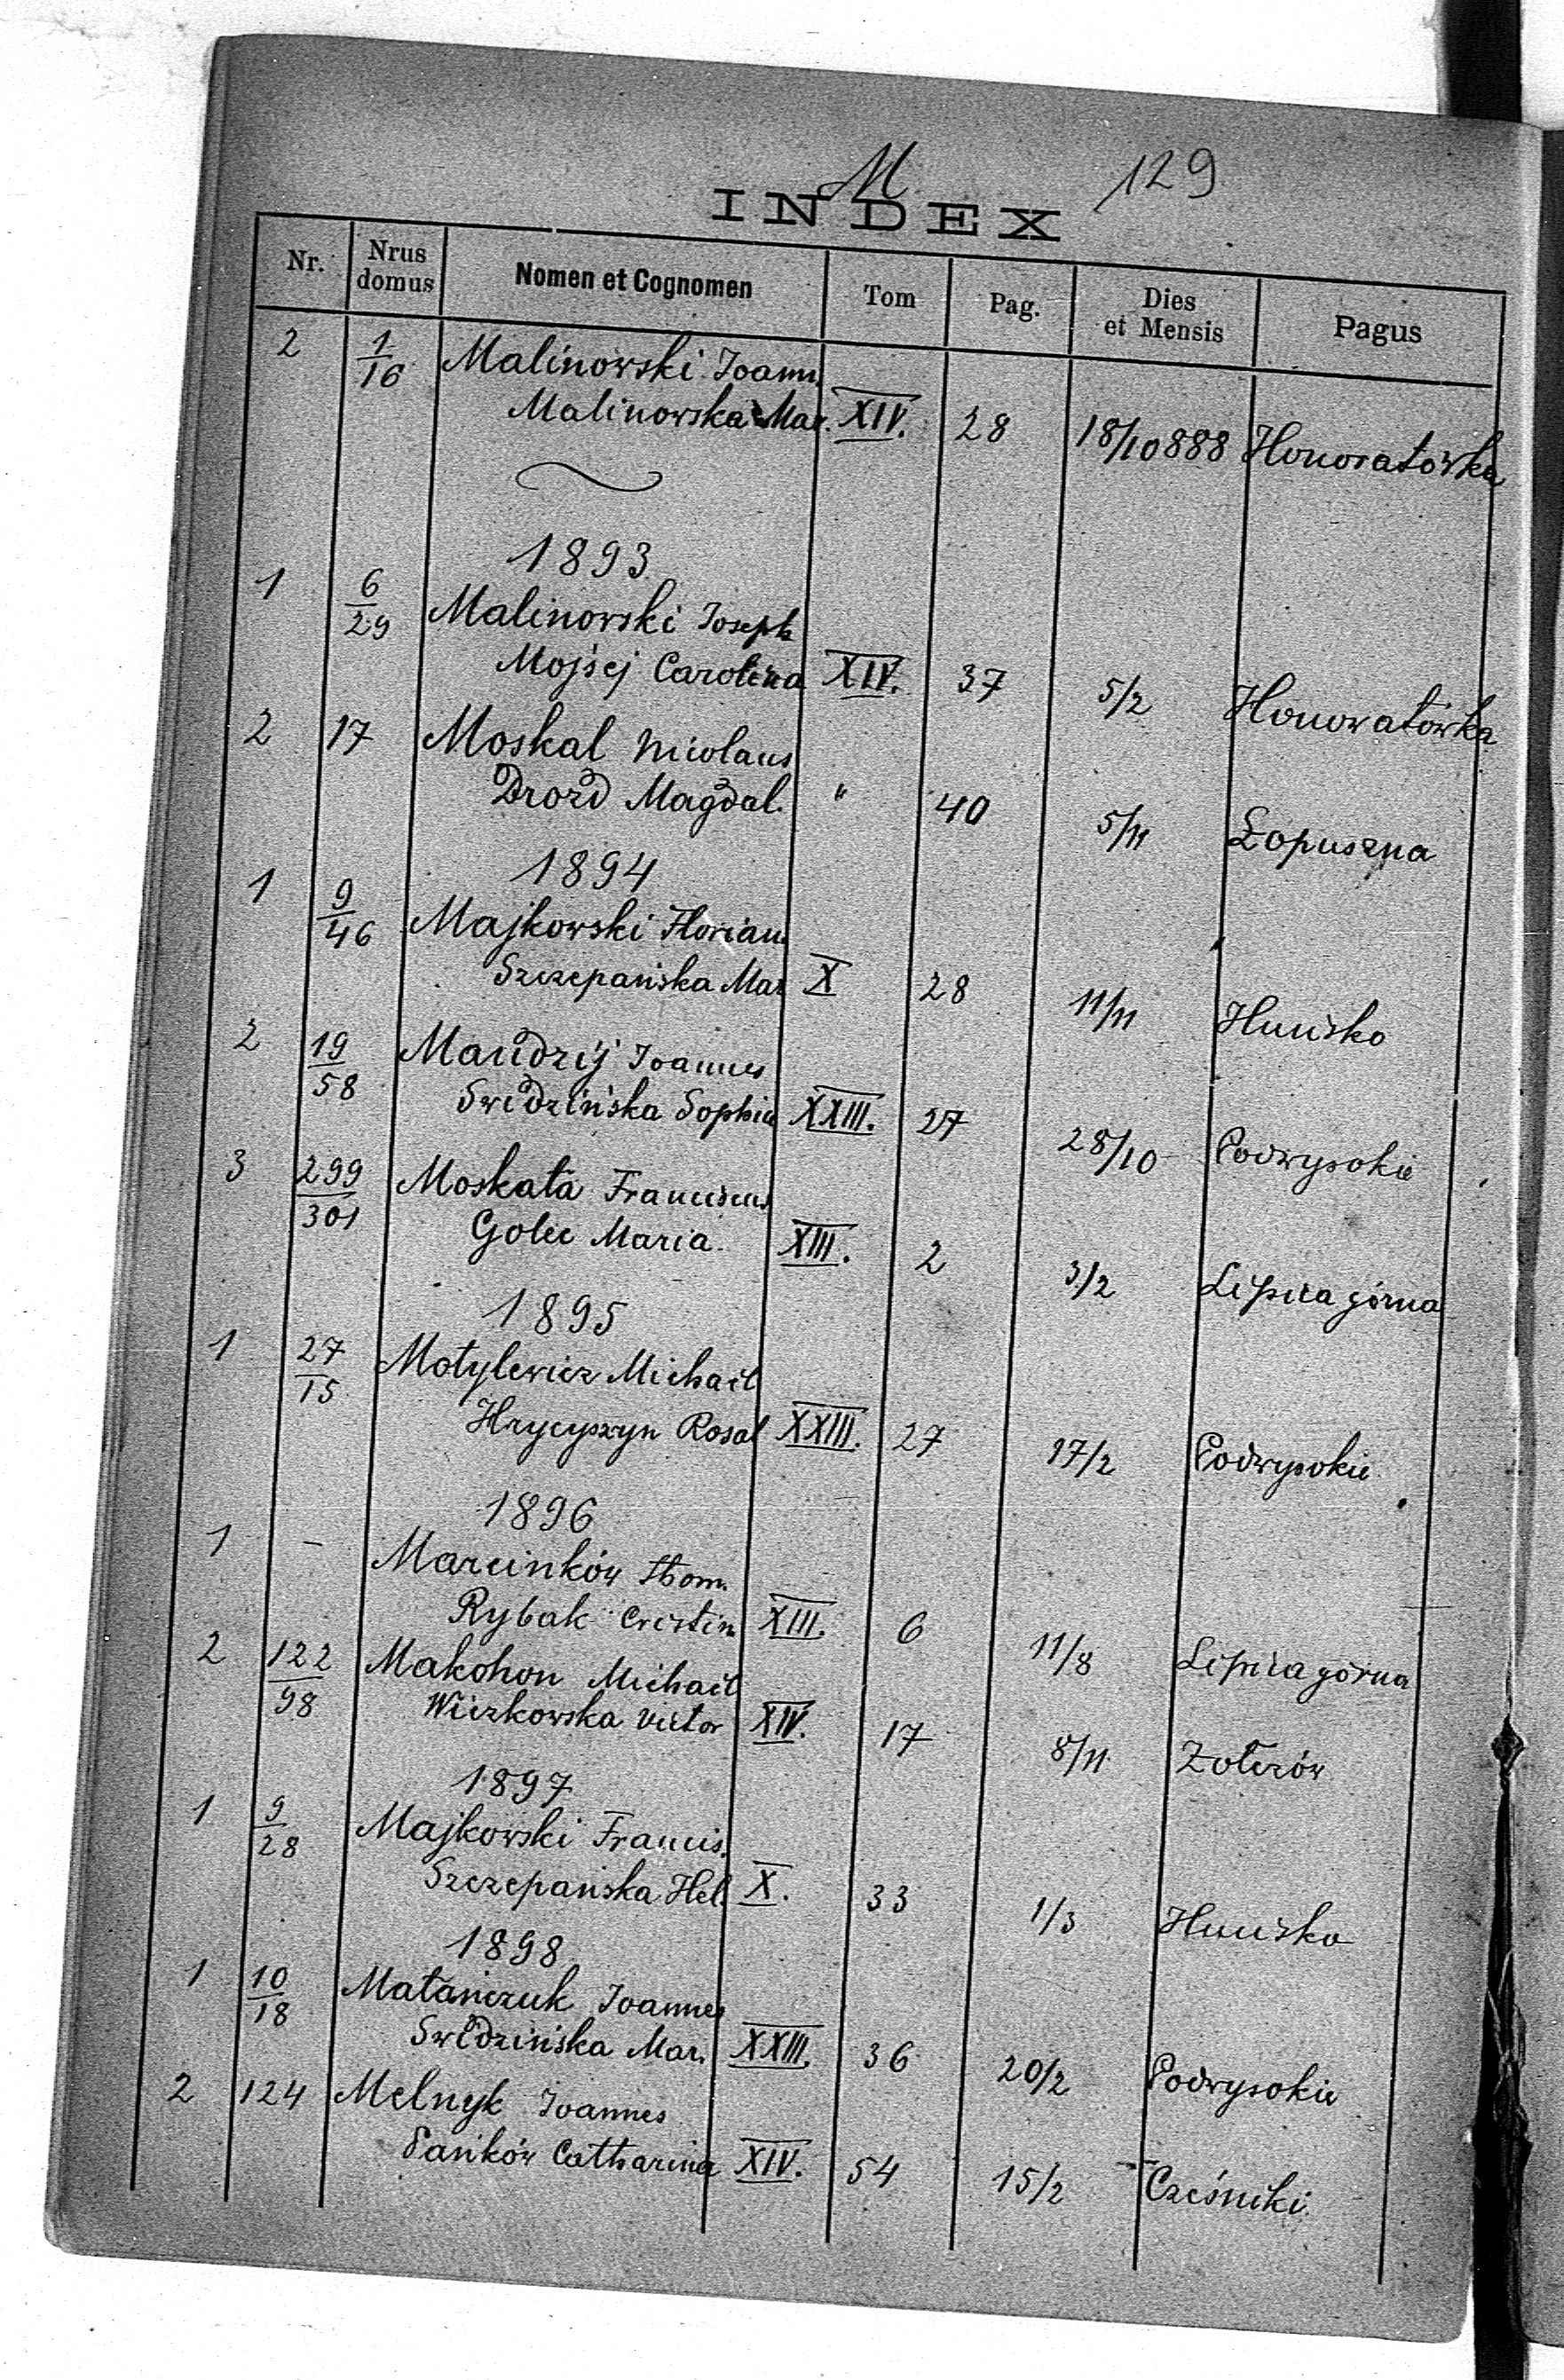 M 129
INDEX
Nr. Nrus domus Nomen et Cognomen Tom Pag. Dies et Mensis Pagus
2 1/16 Malinowski Joann.
Malinowska Mar. XIV. 28 18/10 888 Honoratówka
1893
1 6/29 Malinowski Joseph
Mojsej Carolina XIV. 37 5/2 Honoratówka
2 17 Moskal Nicolaus
Drozd Magdal. " 40 5/11 Łopuszna
1894
1 9/46 Majkowski Florian
Szczepańska Mar X 28 11/11 Hucisko
2 19/58 Mandzij Joannes
Swidzińska Sophia XXIII. 27 28/10 Podwysokie
3 299/301 Moskała Franciscus
Golec Maria. XIII. 2 3/2 Lipica górna
1895
1 27/15 Motylewicz Michael
Hrycyszyn Rosal XXIII. 27 17/2 Podwysokie
1896
1 – Marcinków Thom.
Rybak Cristin XIII. 6 11/8 Lipica górna
2 122/98 Makohon Michael
Wiczkowska Victor XIV. 17 8/11 Żołczów
1897
1 9/28 Majkowski Francis.
Szczepańska Hel. X. 33 1/3 Hucisko
1898
1 10/18 Matańczuk Joannes
Swidzińska Mar. XXIII. 36 20/2 Podwysokie
2 124 Melnyk Joannes
Pańków Catharina XIV. 54 15/2 Cześniki